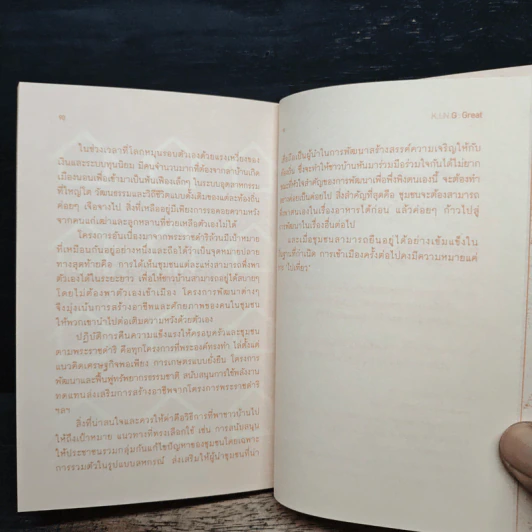 ในช่วงเวลาที่โลกหมุนรอบตัวเองด้วยแรงเหวี่ยงของ
เงินและระบบทุนนิยม มีคนจำนวนมากที่ต้องจากลาบ้านเกิด
เมืองนอนเพื่อเข้ามาเป็นฟันเฟืองเล็กๆ ในระบบอุตสาหกรรม
ที่ใหญ่โต วัฒนธรรมและวิถีชีวิตแบบดั้งเดิมของแต่ละท้องถิ่น
ค่อยๆ เจือจางไป สิ่งที่เหลืออยู่มีเพียงการรอคอยความหวัง
จากคนแก่เฒ่าและลูกหลานที่ช่วยเหลือตัวเองไม่ได้
โครงการอันเนื่องมาจากพระราชดำริล้วนมีเป้าหมาย
ที่เหมือนกันอยู่อย่างหนึ่งและถือได้ว่าเป็นจุดหมายปลาย
ทางสุดท้ายคือ การได้เห็นชุมชนแต่ละแห่งสามารถพึ่งพา
ตัวเองได้ในระยะยาว เพื่อให้ชาวบ้านสามารถอยู่ได้สบายๆ
โดยไม่ต้องพาตัวเองเข้าเมือง โครงการพัฒนาต่างๆ
จึงมุ่งเน้นการสร้างอาชีพและศักยภาพของคนในชุมชน
ให้พวกเขานำไปต่อเติมความหวังด้วยตัวเอง
ปฏิบัติการคืนความแข็งแรงให้ครอบครัวและชุมชน
ตามพระราชดำริ คือทุกโครงการที่พระองค์ทรงทำ ไล่ตั้งแต่
แนวคิดเศรษฐกิจพอเพียง การเกษตรแบบยั่งยืน โครงการ
พัฒนาและฟื้นฟูทรัพยากรธรรมชาติ สนับสนุนการใช้พลังงาน
ทดแทนส่งเสริมการสร้างอาชีพจากโครงการพระราชดำริ
ฯลฯ
สิ่งที่น่าสนใจและควรให้ค่าคือวิธีการที่พาชาวบ้านไป
ให้ถึงเป้าหมาย แนวทางที่ทรงเลือกใช้ เช่น การสนับสนุน
ให้ประชาชนรวมกลุ่มกันแก้ไขปัญหาของชุมชนโดยเฉพาะ
การรวมตัวในรูปแบบสหกรณ์ ส่งเสริมให้ผู้นำชุมชนที่น่า
K.I.N.G : Great
เป็นผู้นำในการพัฒนาสร้างสรรค์ความเจริญให้กับ
ซึ่งจะทำให้ชาวบ้านหันมาร่วมมือร่วมใจกันได้ไม่ยาก
หัวใจสำคัญของการพัฒนาเพื่อพึ่งพิงตนเองนี้ จะต้องทำ
ค่อยเป็นค่อยไป สิ่งสำคัญที่สุดคือ ชุมชนจะต้องสามารถ
ตนเองในเรื่องอาหารได้ก่อน แล้วค่อยๆ ก้าวไปสู่
การพัฒนาในเรื่องอื่นต่อไป
และเมื่อชุมชนสามารถยืนอยู่ได้อย่างเข้มแข็งใน
ถิ่นกำเนิด การเข้าเมืองครั้งต่อไปคงมีความหมายแค่
'ไปเที่ยว'